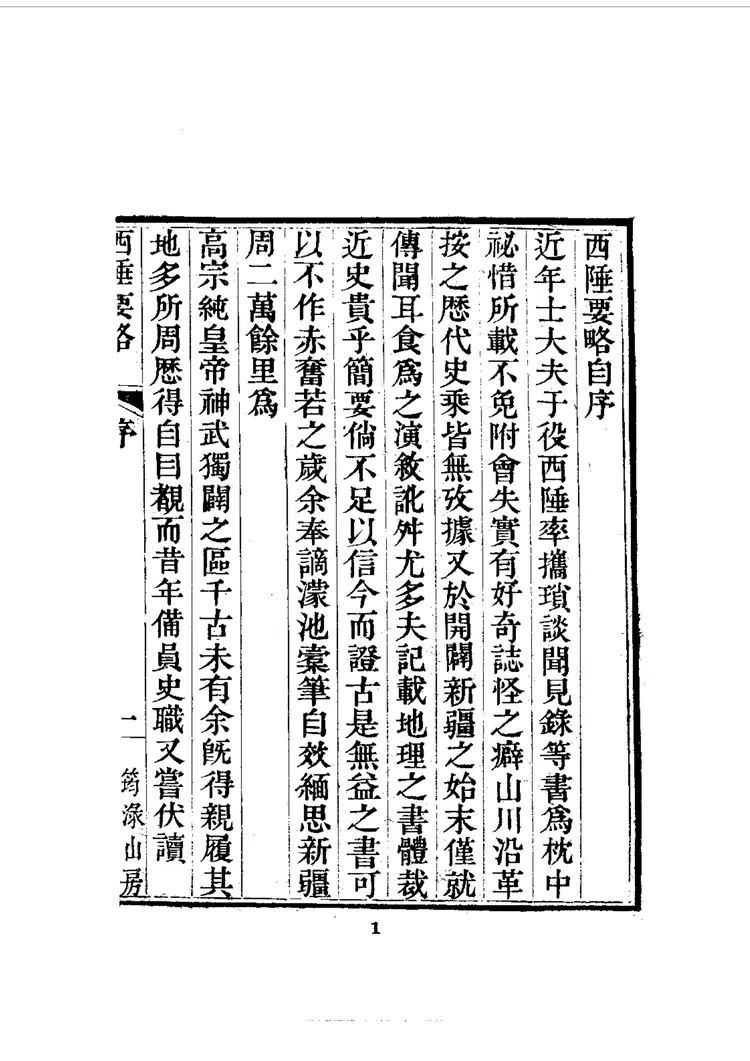 西陲要略自序
近年士大夫于役西陲率攜瑣談聞見錄等書爲枕中
祕惜所載不免附會失實有好奇誌怪之癖山川沿革
按之歷代史乘皆無攷據又於開闢新疆之始末僅就
傳聞耳食爲之演敘訛舛尤多夫記載地理之書體裁
近史貴乎簡要倘不足以信今而證古是無益之書可
以不作赤奮若之歲余奉謫濛池橐筆自效緬思新疆
周二萬餘里爲
高宗純皇帝神武獨闢之區千古未有余旣得親履其
地多所周歷得自目覩而昔年備員史職又嘗伏讀
西陲要略 序 一 筠淥山房
1